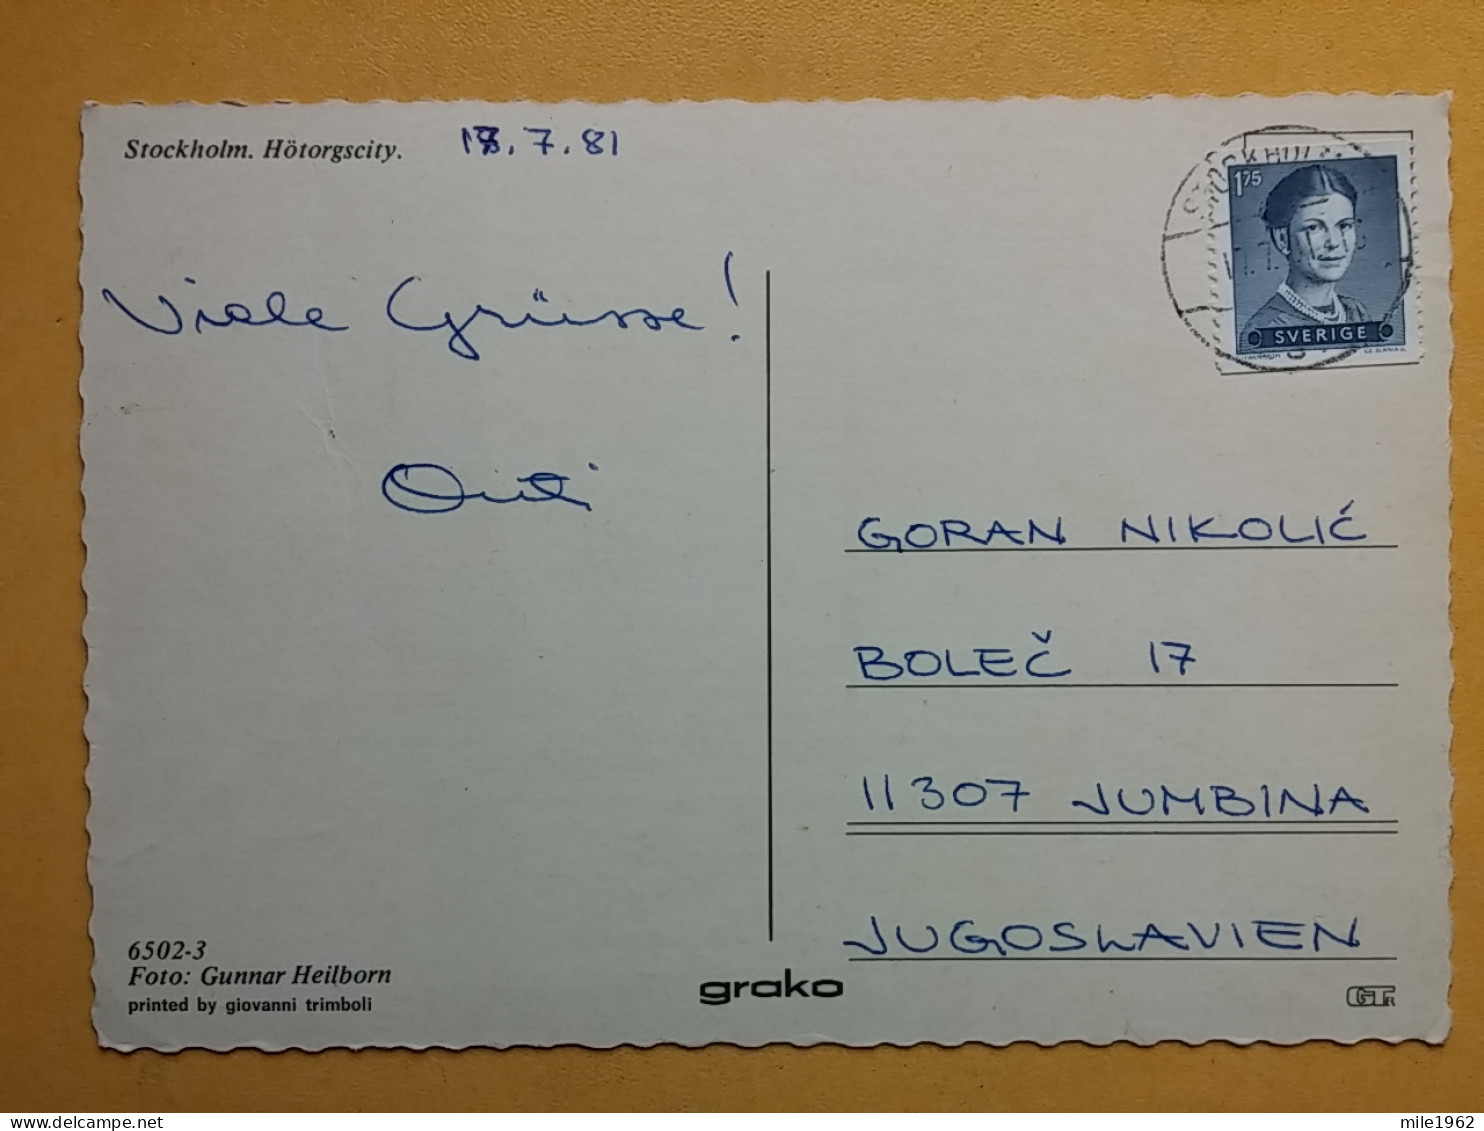 Stockholm. Hötorgscity.
.7.81
STOCKHOLM
1 75
SVERIGE
CZ. SLANIA
Viele Grüsse!
GORAN NIKOLIĆ
BOLEČ 17
11307 JUMBINA
JUGOSLAVIEN
6502-3
Foto: Gunnar Heilborn
printed by giovanni trimboli
grako
GTR
mile1962